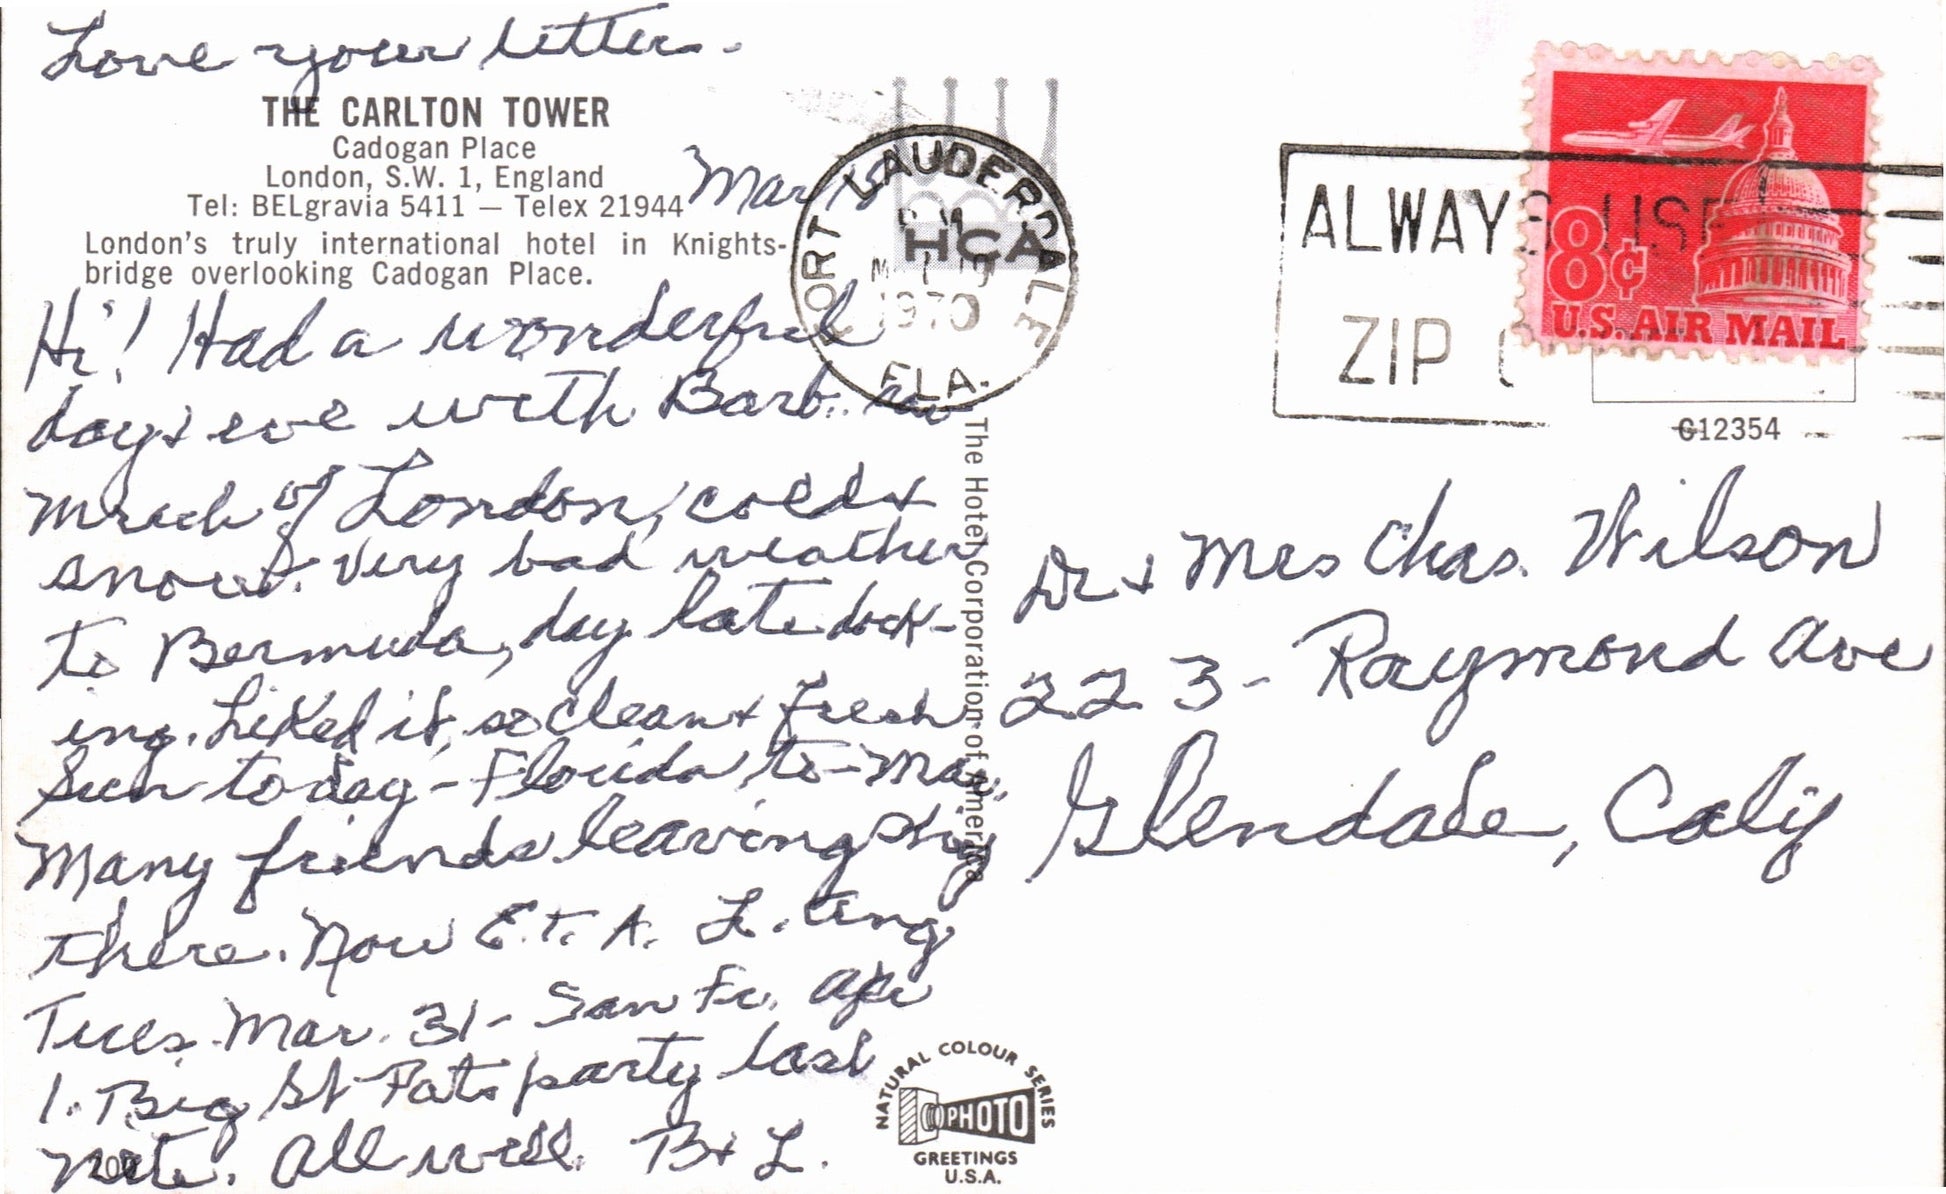 Love your letter.
THE CARLTON TOWER
Cadogan Place
London, S.W. 1, England
Tel: BELgravia 5411 — Telex 21944
London's truly international hotel in Knights-
bridge overlooking Cadogan Place.
Mar
Hi! Had a wonderful
day & eve with Barb.. saw
much of London, cold &
snow. Very bad weather
to Bermuda, day late dock-
ing. Liked it, so clean & fresh
Sun today - Florida, to-
Many friends leaving ship
there. Now E.T.A. L.
Tues. Mar. 31 - San Fr. Apr
1. Big St Pats party last
nite. All well. B & L.
FORT LAUDERDALE
PM
HCA
1970
FLA.
The Hotel Corporation of America
ALWAYS USE
ZIP
8¢
U.S. AIR MAIL
G12354
Dr & Mrs Chas. Wilson
223 - Raymond Ave
Glendale, Calif
NATURAL COLOUR SERIES
PHOTO
GREETINGS
U.S.A.